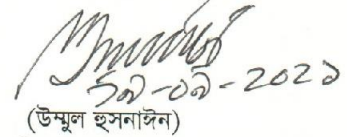 ২৯-০৯-২০২১
(উম্মুল হুসনাঈন)